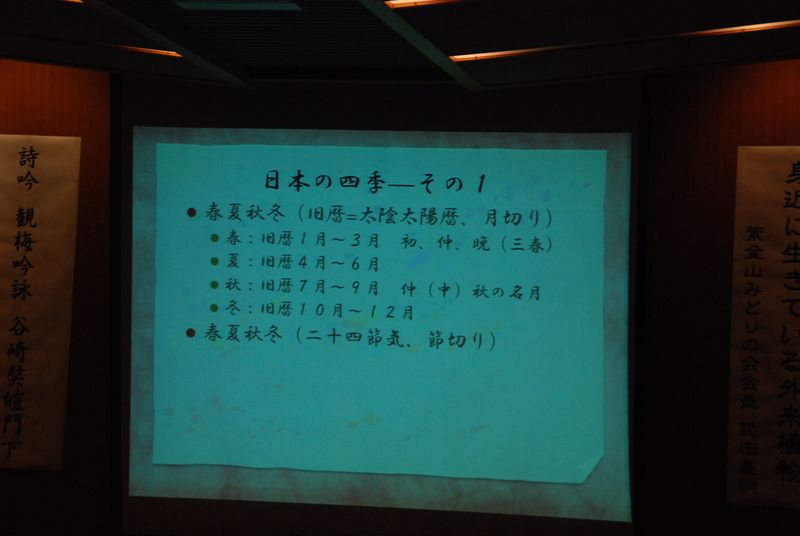 日本の四季―その1
春夏秋冬（旧暦=太陰太陽暦、月切り）
春：旧暦1月～3月　初、仲、晩（三春）
夏：旧暦4月～6月
秋：旧暦7月～9月　仲（中）秋の名月
冬：旧暦10月～12月
春夏秋冬（二十四節気、節切り）
詩吟　観梅吟詠　谷崎奘皚門下
身近に生きている外来植物
紫金山みどりの会会長　武田義明